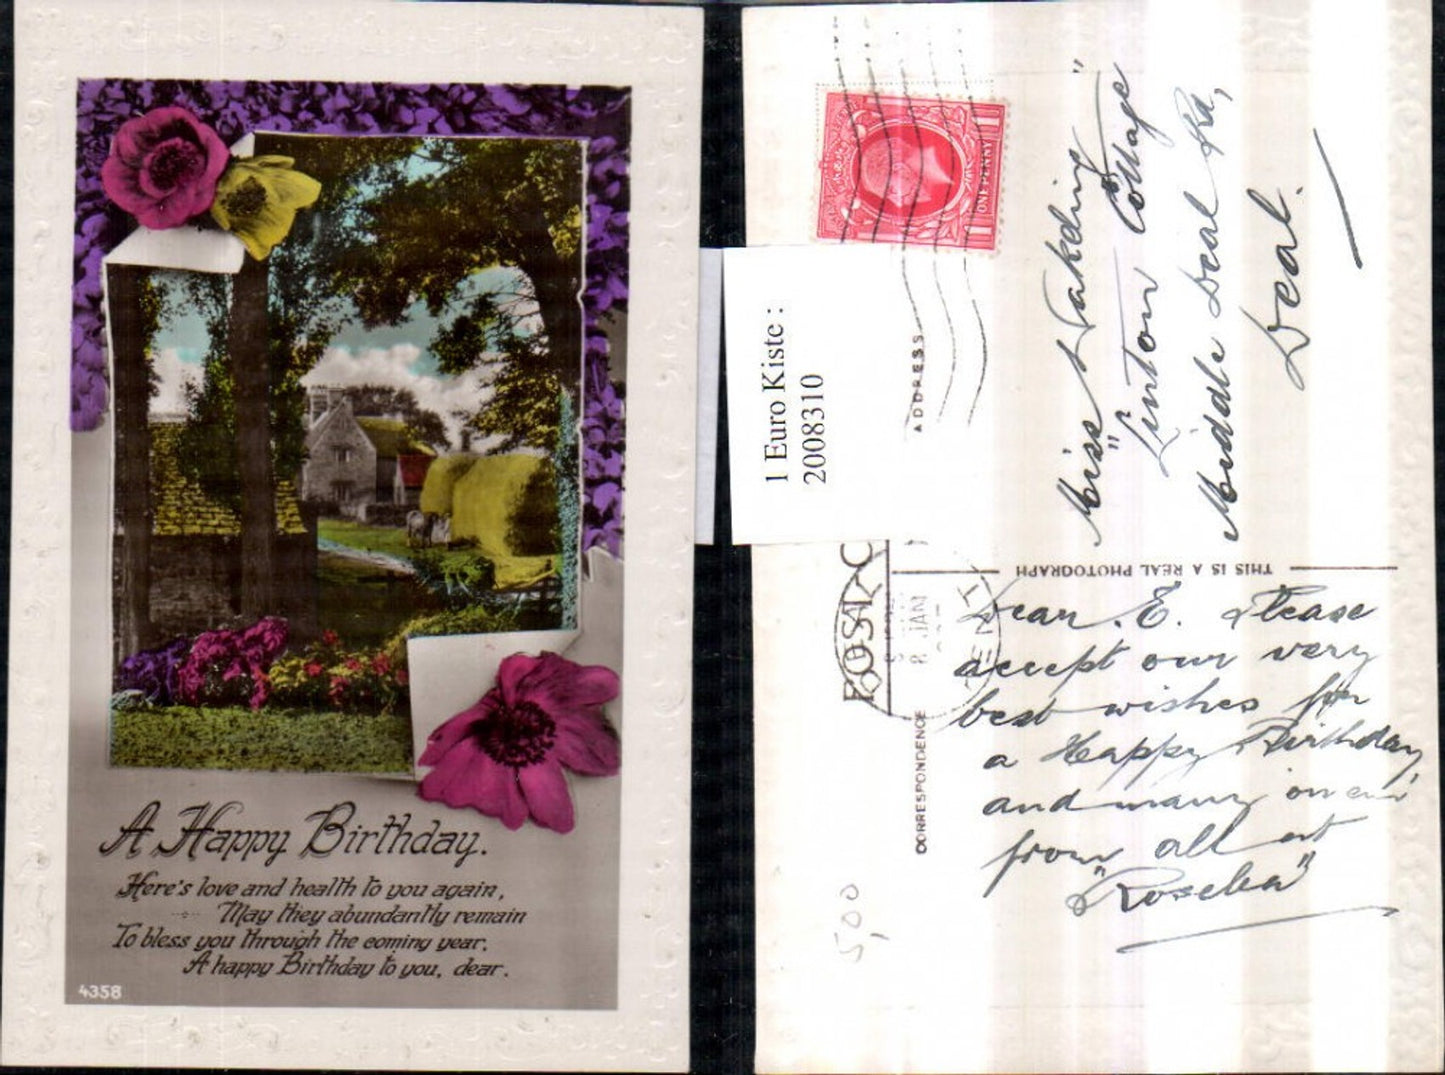 A Happy Birthday.
Here's love and health to you again,
May they abundantly remain
To bless you through the coming year,
A happy Birthday to you, dear.
4358
ONE PENNY
1 Euro Kiste :
2008310
ADDRESS
Miss
"Linton Cottage"
Middle Deal Rd,
Deal.
THIS IS A REAL PHOTOGRAPH
POST C
8 AM
CORRESPONDENCE
Dear E. Please
accept our very
best wishes for
a Happy Birthday,
and many
from all at
5,00